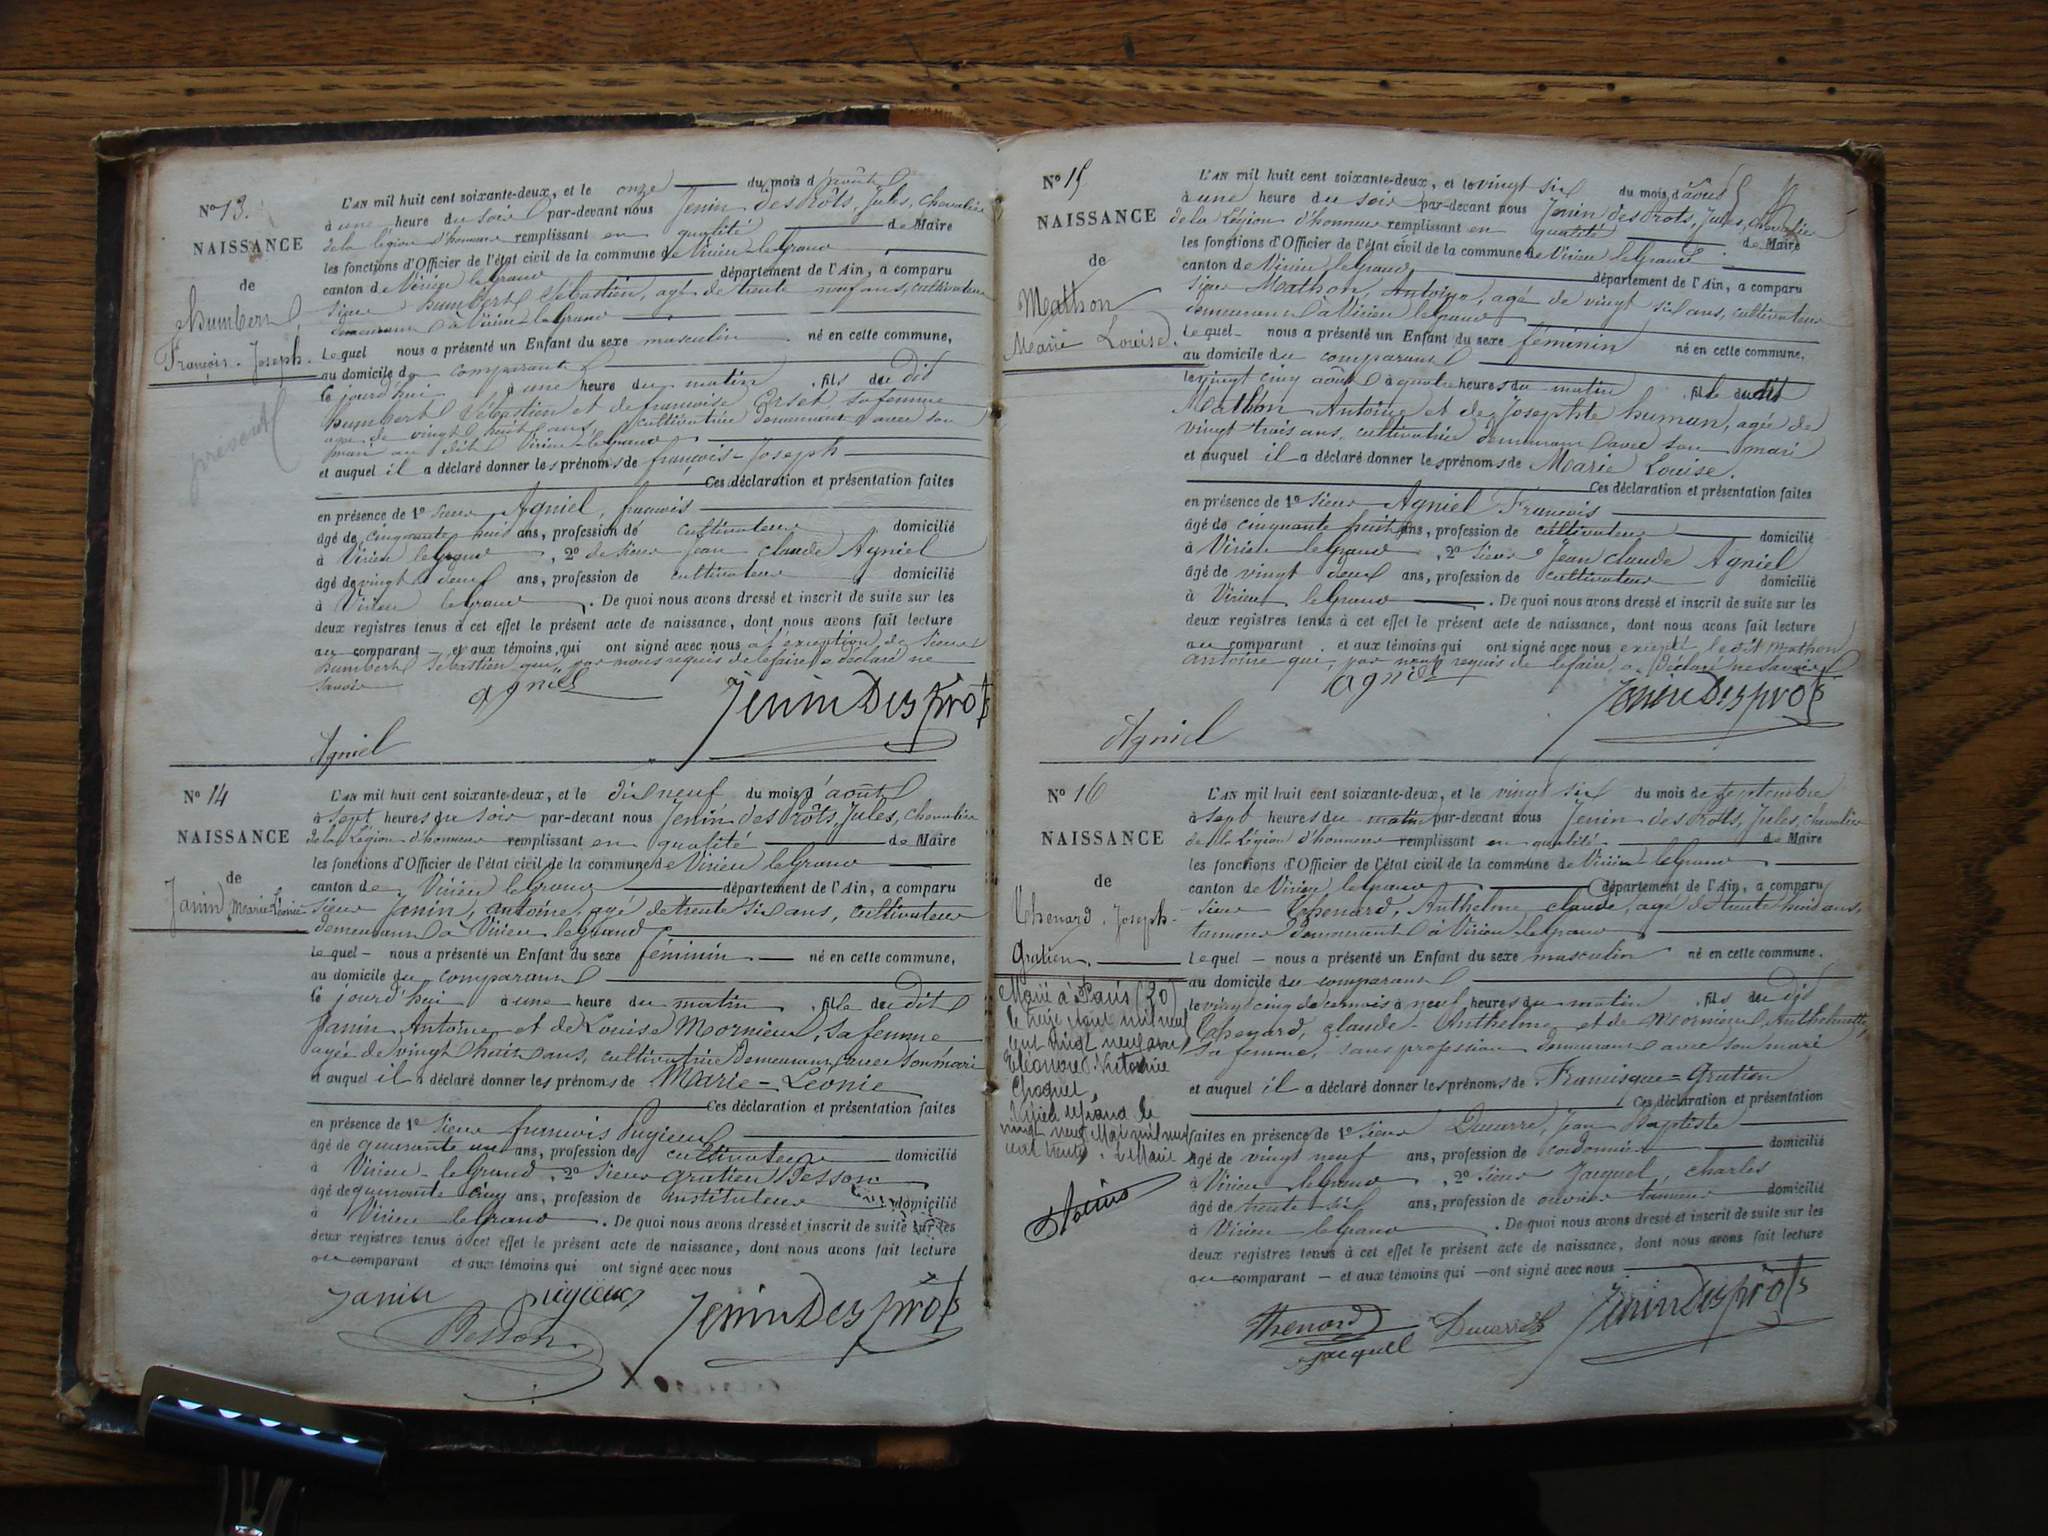 N° 13.
NAISSANCE
de
Humbert
François-Joseph.
présent
L'AN mil huit cent soixante-deux, et le onze du mois d'août
à une heure du soir par-devant nous Jenin des Prôts, Jules, Chevalier
de la légion d'honneur remplissant en qualité de Maire
les fonctions d'Officier de l'état civil de la commune de Virieu-le-Grand
canton de Virieu le Grand département de l'Ain, a comparu
Sieur Humbert Sébastien, agé de trente neuf ans, cultivateur
demeurant à Virieu-le-Grand
Lequel nous a présenté un Enfant du sexe masculin né en cette commune,
au domicile du comparant
Ce jourd'hui à une heure du matin, fils du dit
Humbert Sébastien et de françoise Erset sa femme
agée de vingt huit ans, cultivatrice demeurant avec son
mari au dit Virieu-le-grand
et auquel il a déclaré donner les prénoms de françois-Joseph
Ces déclaration et présentation faites
en présence de 1° sieur Agniel, francois
âgé de cinquante huit ans, profession de cultivateur domicilié
à Virieu le Grand, 2° de sieur Jean claude Agniel
âgé de vingt deux ans, profession de cultivateur domicilié
à Virieu le grand. De quoi nous avons dressé et inscrit de suite sur les
deux registres tenus à cet effet le présent acte de naissance, dont nous avons fait lecture
au comparant et aux témoins qui ont signé avec nous à l'exception de Sieur
humbert Sébastien que par nous requis de le faire a déclaré ne
savoir
agniel
Jenin Des prôts
Agniel
N° 14
NAISSANCE
de
Janin, Marie Léonie
L'AN mil huit cent soixante-deux, et le dix neuf du mois d'août
à sept heures du soir par-devant nous Jenin des Prôts, Jules, Chevalier
de la Légion d'honneur remplissant en qualité de Maire
les fonctions d'Officier de l'état civil de la commune de Virieu le Grand
canton de Virieu le Grand département de l'Ain, a comparu
Sieur Janin, antoine, agé de trente six ans, cultivateur
demeurant à Virieu le grand
Lequel nous a présenté un Enfant du sexe féminin né en cette commune,
au domicile du comparant
Ce jourd'hui à une heure du matin, fille du dit
Janin Antoine et de Louise Mornieux, sa femme
agée de vingt huit ans, cultivatrice demeurant avec son mari
et auquel il a déclaré donner les prénoms de Marie-Léonie
Ces déclaration et présentation faites
en présence de 1° Sieur francois Pugieux
âgé de quarante un ans, profession de cultivateur domicilié
à Virieu-le Grand, 2° Sieur gratien Besson
âgé de quarante cinq ans, profession de instituteur domicilié
à Virieu le Grand. De quoi nous avons dressé et inscrit de suite sur les
deux registres tenus à cet effet le présent acte de naissance, dont nous avons fait lecture
au comparant et aux témoins qui ont signé avec nous
Janin pugieux Jenin Des prôts
Besson
N° 15
NAISSANCE
de
Mathon
Marie Louise.
L'AN mil huit cent soixante-deux, et le vingt six du mois d'août
à une heure du soir par-devant nous Jenin des Prots, Jules, Chevalier
de la Légion d'honneur remplissant en qualité de Maire
les fonctions d'Officier de l'état civil de la commune de Virieu le Grand
canton de Virieu le Grand département de l'Ain, a comparu
Sieur Mathon, Antoine, agé de vingt six ans, cultivateur
demeurant à Virieu le grand
Lequel nous a présenté un Enfant du sexe féminin né en cette commune,
au domicile du comparant
le vingt cinq août à quatre heures du matin, fille du dit
Mathon Antoine et de Josephte human, agée de
vingt trois ans, cultivatrice demeurant avec son mari
et auquel il a déclaré donner les prénoms de Marie Louise.
Ces déclaration et présentation faites
en présence de 1° Sieur Agniel Francois
âgé de cinquante huit ans, profession de cultivateur domicilié
à Virieu le Grand, 2° Sieur Jean claude Agniel
âgé de vingt deux ans, profession de cultivateur domicilié
à Virieu le grand. De quoi nous avons dressé et inscrit de suite sur les
deux registres tenus à cet effet le présent acte de naissance, dont nous avons fait lecture
au comparant et aux témoins qui ont signé avec nous excepté le dit Mathon
antoine que, par nous requis de le faire, a déclaré ne savoir
agniel
Jenin Des prots
Agniel
N° 16
NAISSANCE
de
Thenard, Joseph-
Gratien.
Marié à Paris (20)
le août mil neuf
cent vingt neuf avec
Eléonore Victorine
Choquel
Virieu le grand le
vingt neuf Mai mil neuf
cent trente. Le Maire
L'AN mil huit cent soixante-deux, et le vingt six du mois de Septembre
à sept heures du matin par-devant nous Jenin des Prots, Jules, chevalier
de la Légion d'honneur remplissant en qualité de Maire
les fonctions d'Officier de l'état civil de la commune de Virieu-le Grand
canton de Virieu le grand département de l'Ain, a comparu
Sieur Thenard, Anthelme claude, agé de trente huit ans,
tanneur demeurant à Virieu-le-grand
Lequel nous a présenté un Enfant du sexe masculin né en cette commune.
au domicile du comparant
le vingt cinq de ce mois à neuf heures du matin, fils du dit
Thenard, claude-Anthelme et de Mornieux, Anthelmette,
sa femme, sans profession demeurant avec son mari
et auquel il a déclaré donner les prénoms de Francisque-Gratien
Ces déclaration et présentation
faites en présence de 1° Sieur Ducarre, Jean Baptiste
âgé de vingt neuf ans, profession de cordonnier domicilié
à Virieu le grand, 2° Sieur Jacquel, charles
âgé de trente six ans, profession de ouvrier tanneur domicilié
à Virieu le grand. De quoi nous avons dressé et inscrit de suite sur les
deux registres tenus à cet effet le présent acte de naissance, dont nous avons fait lecture
au comparant et aux témoins qui ont signé avec nous
Thenard Ducarre Jenin Des prôts
Jacquel